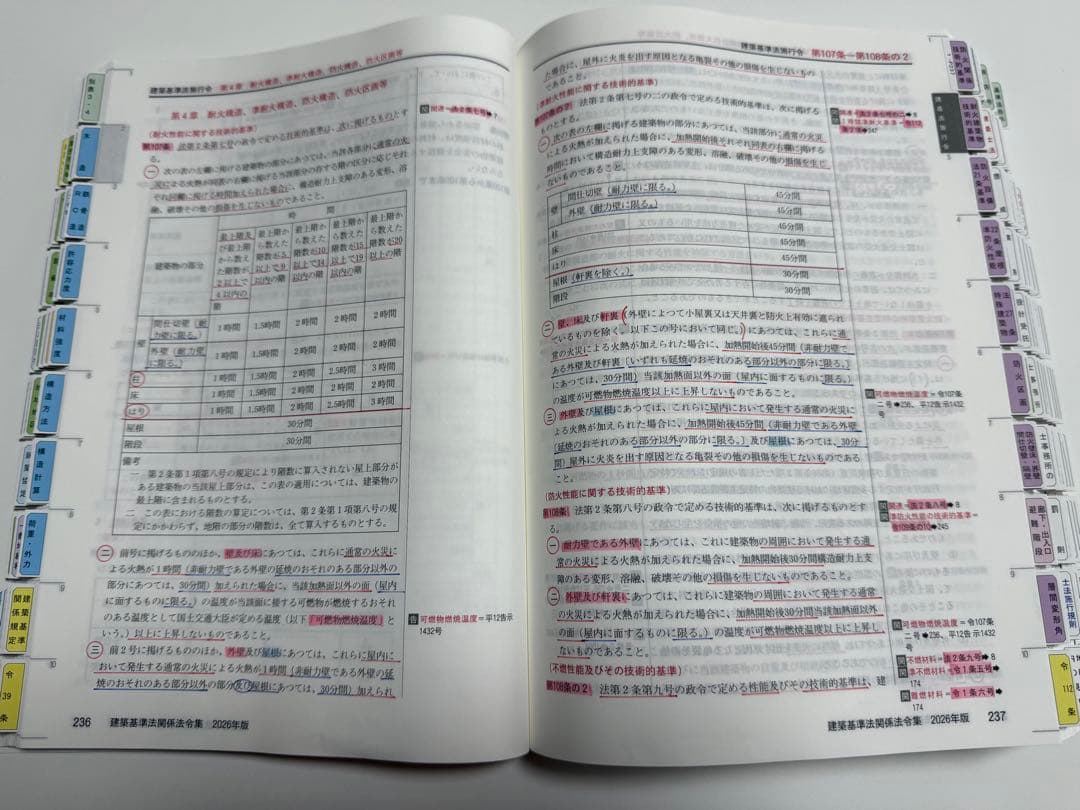 建築基準法施行令 第4章 耐火構造、準耐火構造、防火構造、防火区画等
第4章 耐火構造、準耐火構造、防火構造、防火区画等
(耐火性能に関する技術的基準)
第107条 法第2条第七号の政令で定める技術的基準は、次に掲げるものとする。
一 次の表の左欄に掲げる建築物の部分にあつては、当該各部分に通常の火
災による火熱が同表の右欄に掲げる当該部分の存する階の区分に応じそれ
ぞれ同欄に掲げる時間加えられた場合に、構造耐力上支障のある変形、溶
融、破壊その他の損傷を生じないものであること。
時間
建築物の部分
最上階及び最上階から数えた階数が2以上で4以内の階
最上階から数えた階数が5以上で9以内の階
最上階から数えた階数が10以上で14以内の階
最上階から数えた階数が15以上で19以内の階
最上階から数えた階数が20以上の階
壁
間仕切壁(耐力壁に限る。) 1時間 1.5時間 2時間 2時間 2時間
外壁(耐力壁に限る。) 1時間 1.5時間 2時間 2時間 2時間
柱 1時間 1.5時間 2時間 2.5時間 3時間
床 1時間 1.5時間 2時間 2時間 2時間
はり 1時間 1.5時間 2時間 2.5時間 3時間
屋根 30分間
階段 30分間
備考
一 第2条第1項第八号の規定により階数に算入されない屋上部分が
ある建築物の当該屋上部分は、この表の適用については、建築物の
最上階に含まれるものとする。
二 この表における階数の算定については、第2条第1項第八号の規
定にかかわらず、地階の部分の階数は、全て算入するものとする。
二 前号に掲げるもののほか、壁及び床にあつては、これらに通常の火災に
よる火熱が1時間(非耐力壁である外壁の延焼のおそれのある部分以外の
部分にあつては、30分間)加えられた場合に、当該加熱面以外の面(屋内
に面するものに限る。)の温度が当該面に接する可燃物が燃焼するおそれ
のある温度として国土交通大臣が定める温度(以下「可燃物燃焼温度」と
いう。)以上に上昇しないものであること。
三 前2号に掲げるもののほか、外壁及び屋根にあつては、これらに屋内に
おいて発生する通常の火災による火熱が1時間(非耐力壁である外壁の延
焼のおそれのある部分以外の部分及び屋根にあつては、30分間)加えられ
可燃物燃焼温度=平12告示
1432号
236 建築基準法関係法令集 2026年版
建築基準法施行令 第107条―第108条の2
た場合に、屋外に火炎を出す原因となる亀裂その他の損傷を生じないもの
であること。
(準耐火性能に関する技術的基準)
第107条の2 法第2条第七号の二の政令で定める技術的基準は、次に掲げる
ものとする。
一 次の表の左欄に掲げる建築物の部分にあつては、当該部分に通常の火災
による火熱が加えられた場合に、加熱開始後それぞれ同表の右欄に掲げる
時間において構造耐力上支障のある変形、溶融、破壊その他の損傷を生じ
ないものであること。
壁
間仕切壁(耐力壁に限る。) 45分間
外壁(耐力壁に限る。) 45分間
柱 45分間
床 45分間
はり 45分間
屋根(軒裏を除く。) 30分間
階段 30分間
二 壁、床及び軒裏(外壁によつて小屋裏又は天井裏と防火上有効に遮られ
ているものを除く。以下この号において同じ。)にあつては、これらに通
常の火災による火熱が加えられた場合に、加熱開始後45分間(非耐力壁で
ある外壁及び軒裏(いずれも延焼のおそれのある部分以外の部分に限る。)
にあつては、30分間)当該加熱面以外の面(屋内に面するものに限る。)
の温度が可燃物燃焼温度以上に上昇しないものであること。
三 外壁及び屋根にあつては、これらに屋内において発生する通常の火災に
よる火熱が加えられた場合に、加熱開始後45分間(非耐力壁である外壁
(延焼のおそれのある部分以外の部分に限る。)及び屋根にあつては、30分
間)屋外に火炎を出す原因となる亀裂その他の損傷を生じないものである
こと。
(防火性能に関する技術的基準)
第108条 法第2条第八号の政令で定める技術的基準は、次に掲げるものとする。
一 耐力壁である外壁にあつては、これに建築物の周囲において発生する通
常の火災による火熱が加えられた場合に、加熱開始後30分間構造耐力上支
障のある変形、溶融、破壊その他の損傷を生じないものであること。
二 外壁及び軒裏にあつては、これらに建築物の周囲において発生する通常
の火災による火熱が加えられた場合に、加熱開始後30分間当該加熱面以外
の面(屋内に面するものに限る。)の温度が可燃物燃焼温度以上に上昇し
ないものであること。
(不燃性能及びその技術的基準)
第108条の2 法第2条第九号の政令で定める性能及びその技術的基準は、建
可燃物燃焼温度=令107条
二号➡236、平12告示1432
号
関連=法2条八号➡8
準防火性能の技術的基準=
令109条の10➡245
可燃物燃焼温度=令107条
二号➡236、平12告示1432
号
不燃材料=法2条九号➡8
準不燃材料=令1条五号➡
174
難燃材料=令1条六号➡
174
建築基準法関係法令集 2026年版 237
木造
鉄骨造
RC造
許容応力度
材料強度
構造方法
構造計算
荷重・外力
建築基準
関係規定
令39条
建築基準法施行令
防火区画
廊下・出入口
避難階段
層間変形角
令112条
士法施行規則
罰則